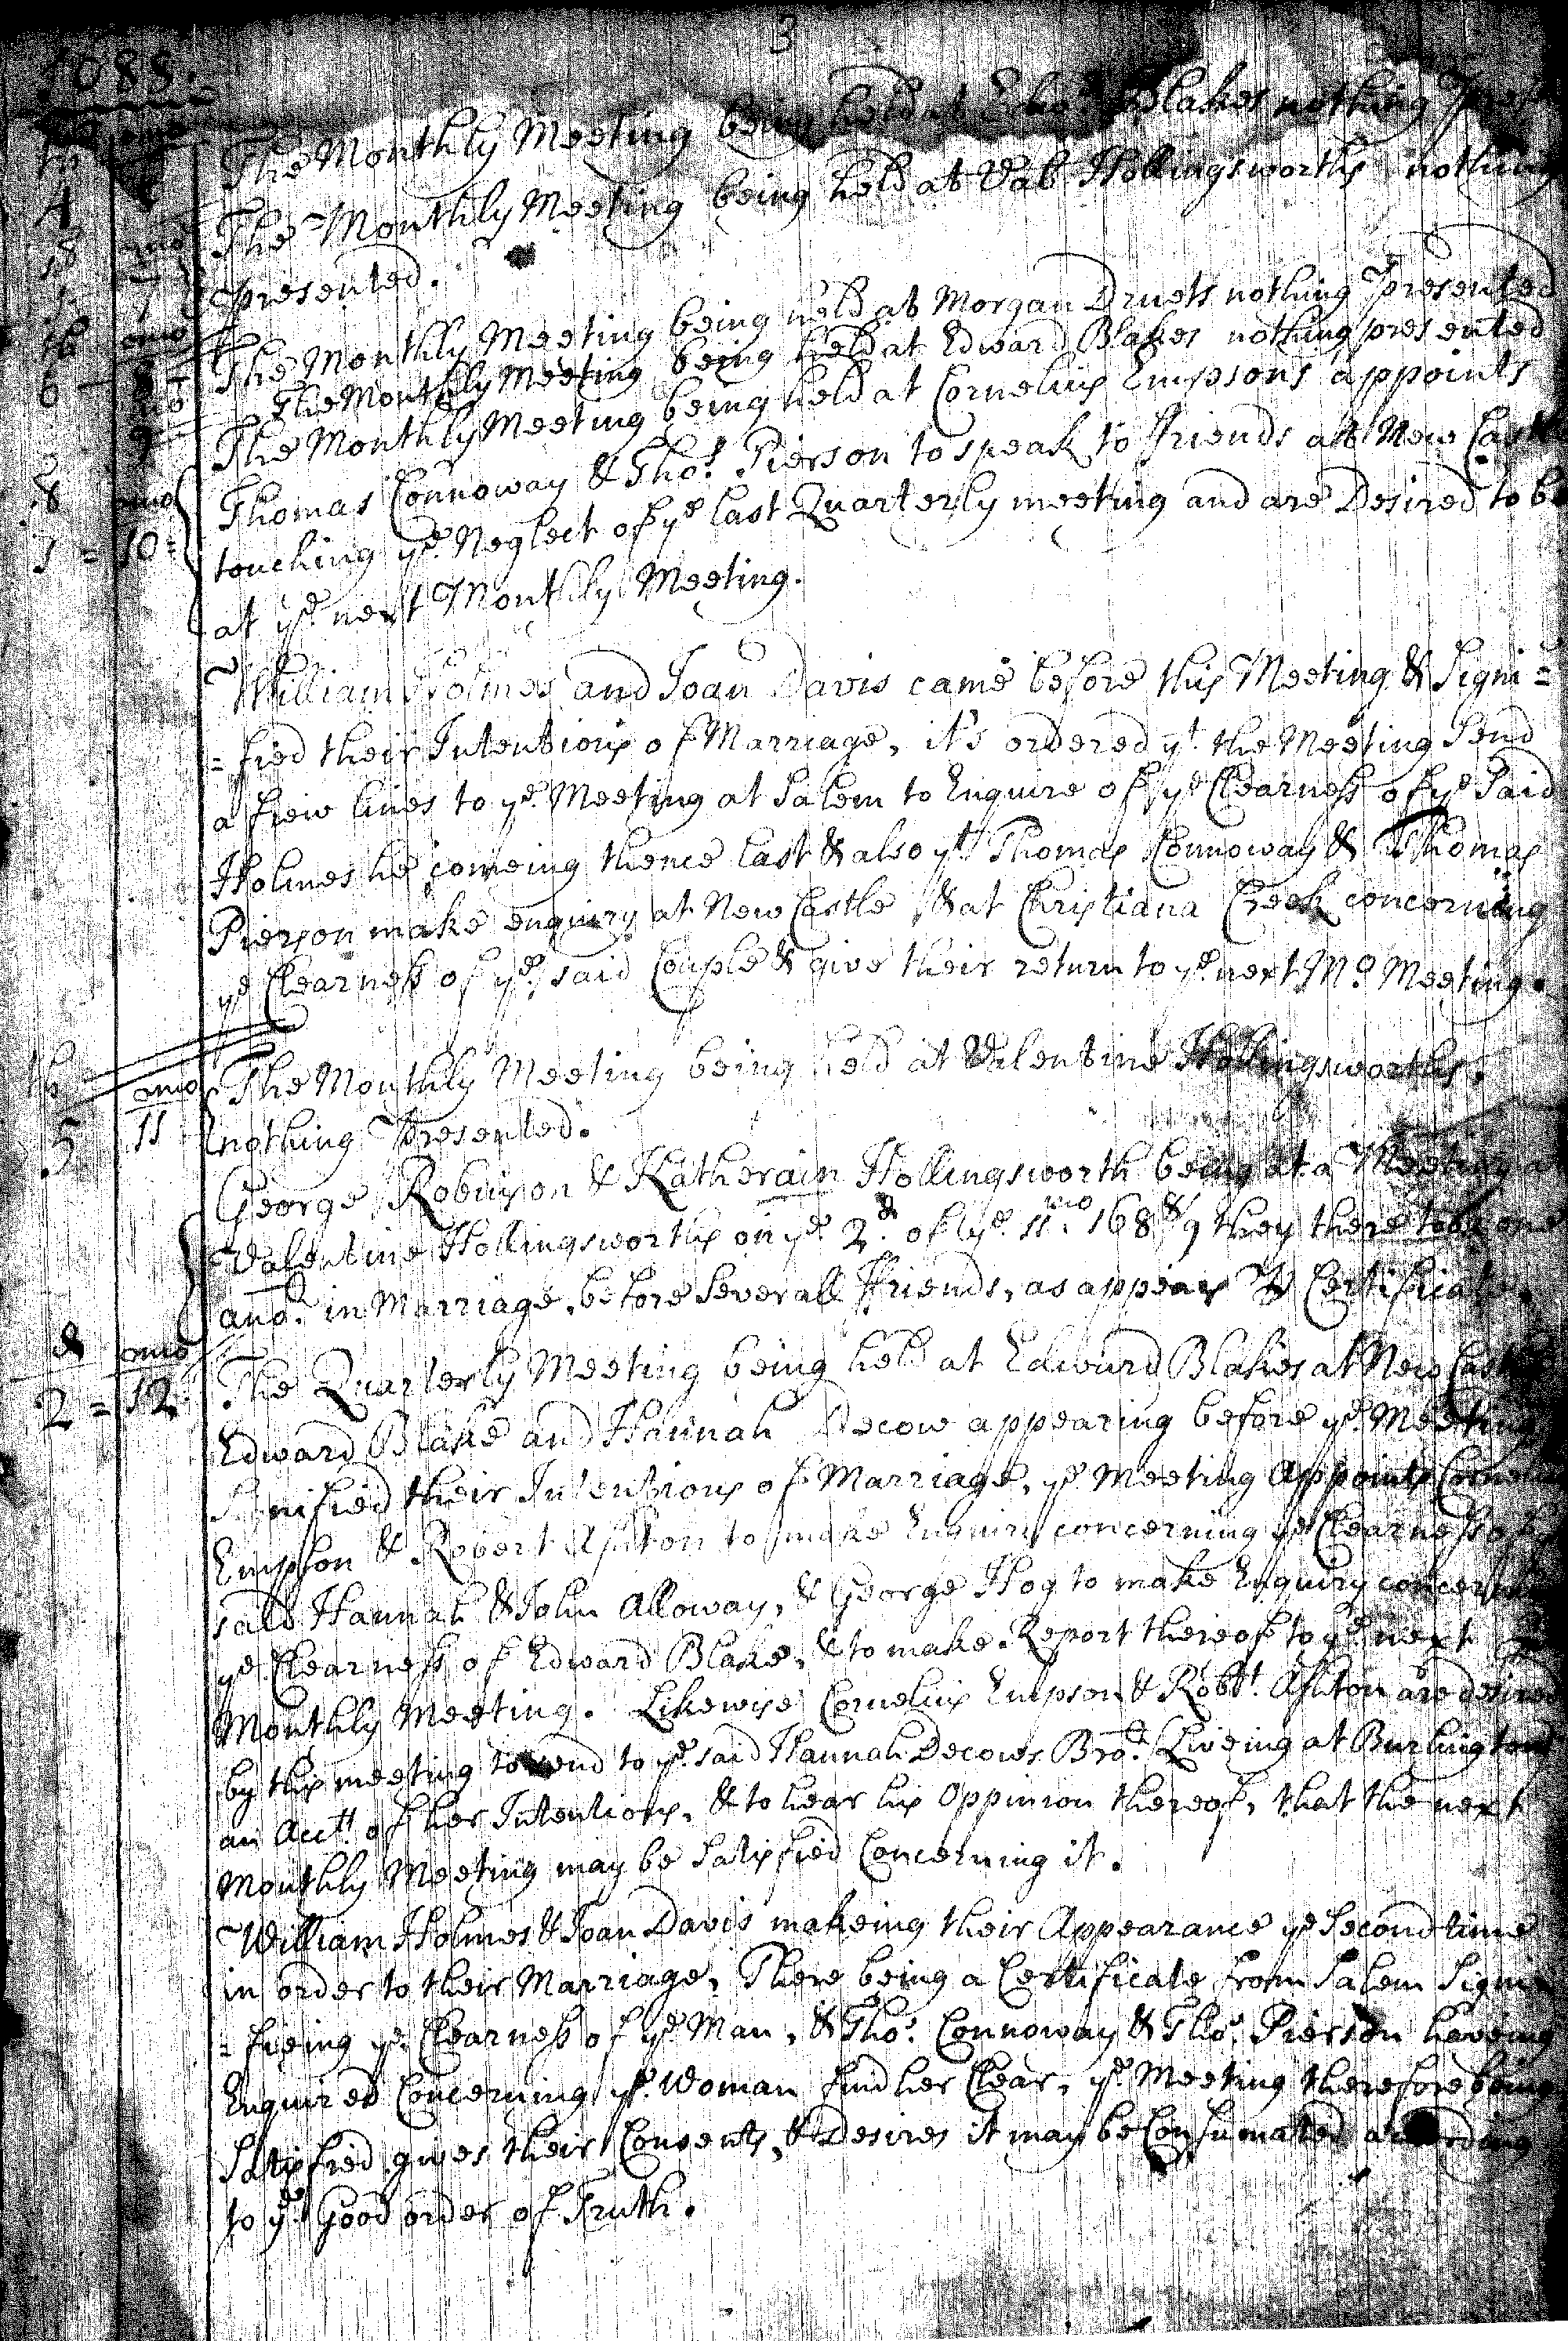 3
1688.
The Monthly Meeting being held at Edwd Blakes nothing
4
The Monthly Meeting being held at Val Hollingsworths nothing
mo
presented.
The Monthly Meeting being held at Morgan Druets nothing presented
6 8 mo
The Monthly Meeting being held at Edward Blakes nothing presented
9
The Monthly Meeting being held at Cornelius Empsons appoints
Thomas Connoway & Thos. Pierson to speak to ffriends att New Castle
mo
touching ye Neglect of ye last Quarterly meeting and are Desired to be
1 = 10 =
at ye next Monthly Meeting.
William Holmes and Joan Davis came before this Meeting & Signi=
=fied their Intentions of Marriage, it's ordered yt the Meeting Send
a ffew lines to ye Meeting at Salem to Enquire of ye Clearness of ye Said
Holmes he comeing thence last & also yt Thomas Connoway & Thomas
Pierson make enquiry at New Castle & at Christiana Creek concerning
ye Clearness of ye said Couple & give their return to ye next Mo. Meeting.
th mo
The Monthly Meeting being held at Valentine Hollingsworths.
5 11
nothing Presented.
George Robinson & Katherain Hollingsworth being at a Meeting at
Valentine Hollingsworths on ye 2d. of ye 11mo 168 8/9 they there took one
ano. in Marriage, before Severall ffriends, as appears Certificate.
d mo
The Quarterly Meeting being held at Edward Blakes at New Castle
2 = 12
Edward Blake and Hannah Decow appearing before ye Meeting
Signified their Intentions of Marriage, ye Meeting Appoints Cornelius
Empson & Robert Ashton to make Enquiry concerning ye Clearness of ye
said Hannah & John Alloway, & George Hog to make Enquiry concerning
ye Clearness of Edward Blake, & to make Report thereof to ye next
Monthly Meeting. Likewise Cornelius Empson & Robtt. Ashton are desired
by this meeting to send to ye said Hannah Decows Bro. Liveing at Burlington
an Acctt. of her Intentions, & to hear his Oppinion thereof, that the next
Monthly Meeting may be Satisfied Concerning it.
William Holmes & Joan Davis makeing their Appearance ye Second time
in order to their Marriage, There being a Certificate from Salem Signi=
=fieing ye Clearness of ye Man, & Tho. Connoway & Tho. Pierson haveing
Enquired Concerning ye Woman find her Clear, ye Meeting therefore being
Satisfied gives their Consents, & Desires it may be Consumated according
to ye Good order of Truth.